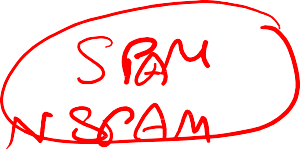 SPAM
NSPAM